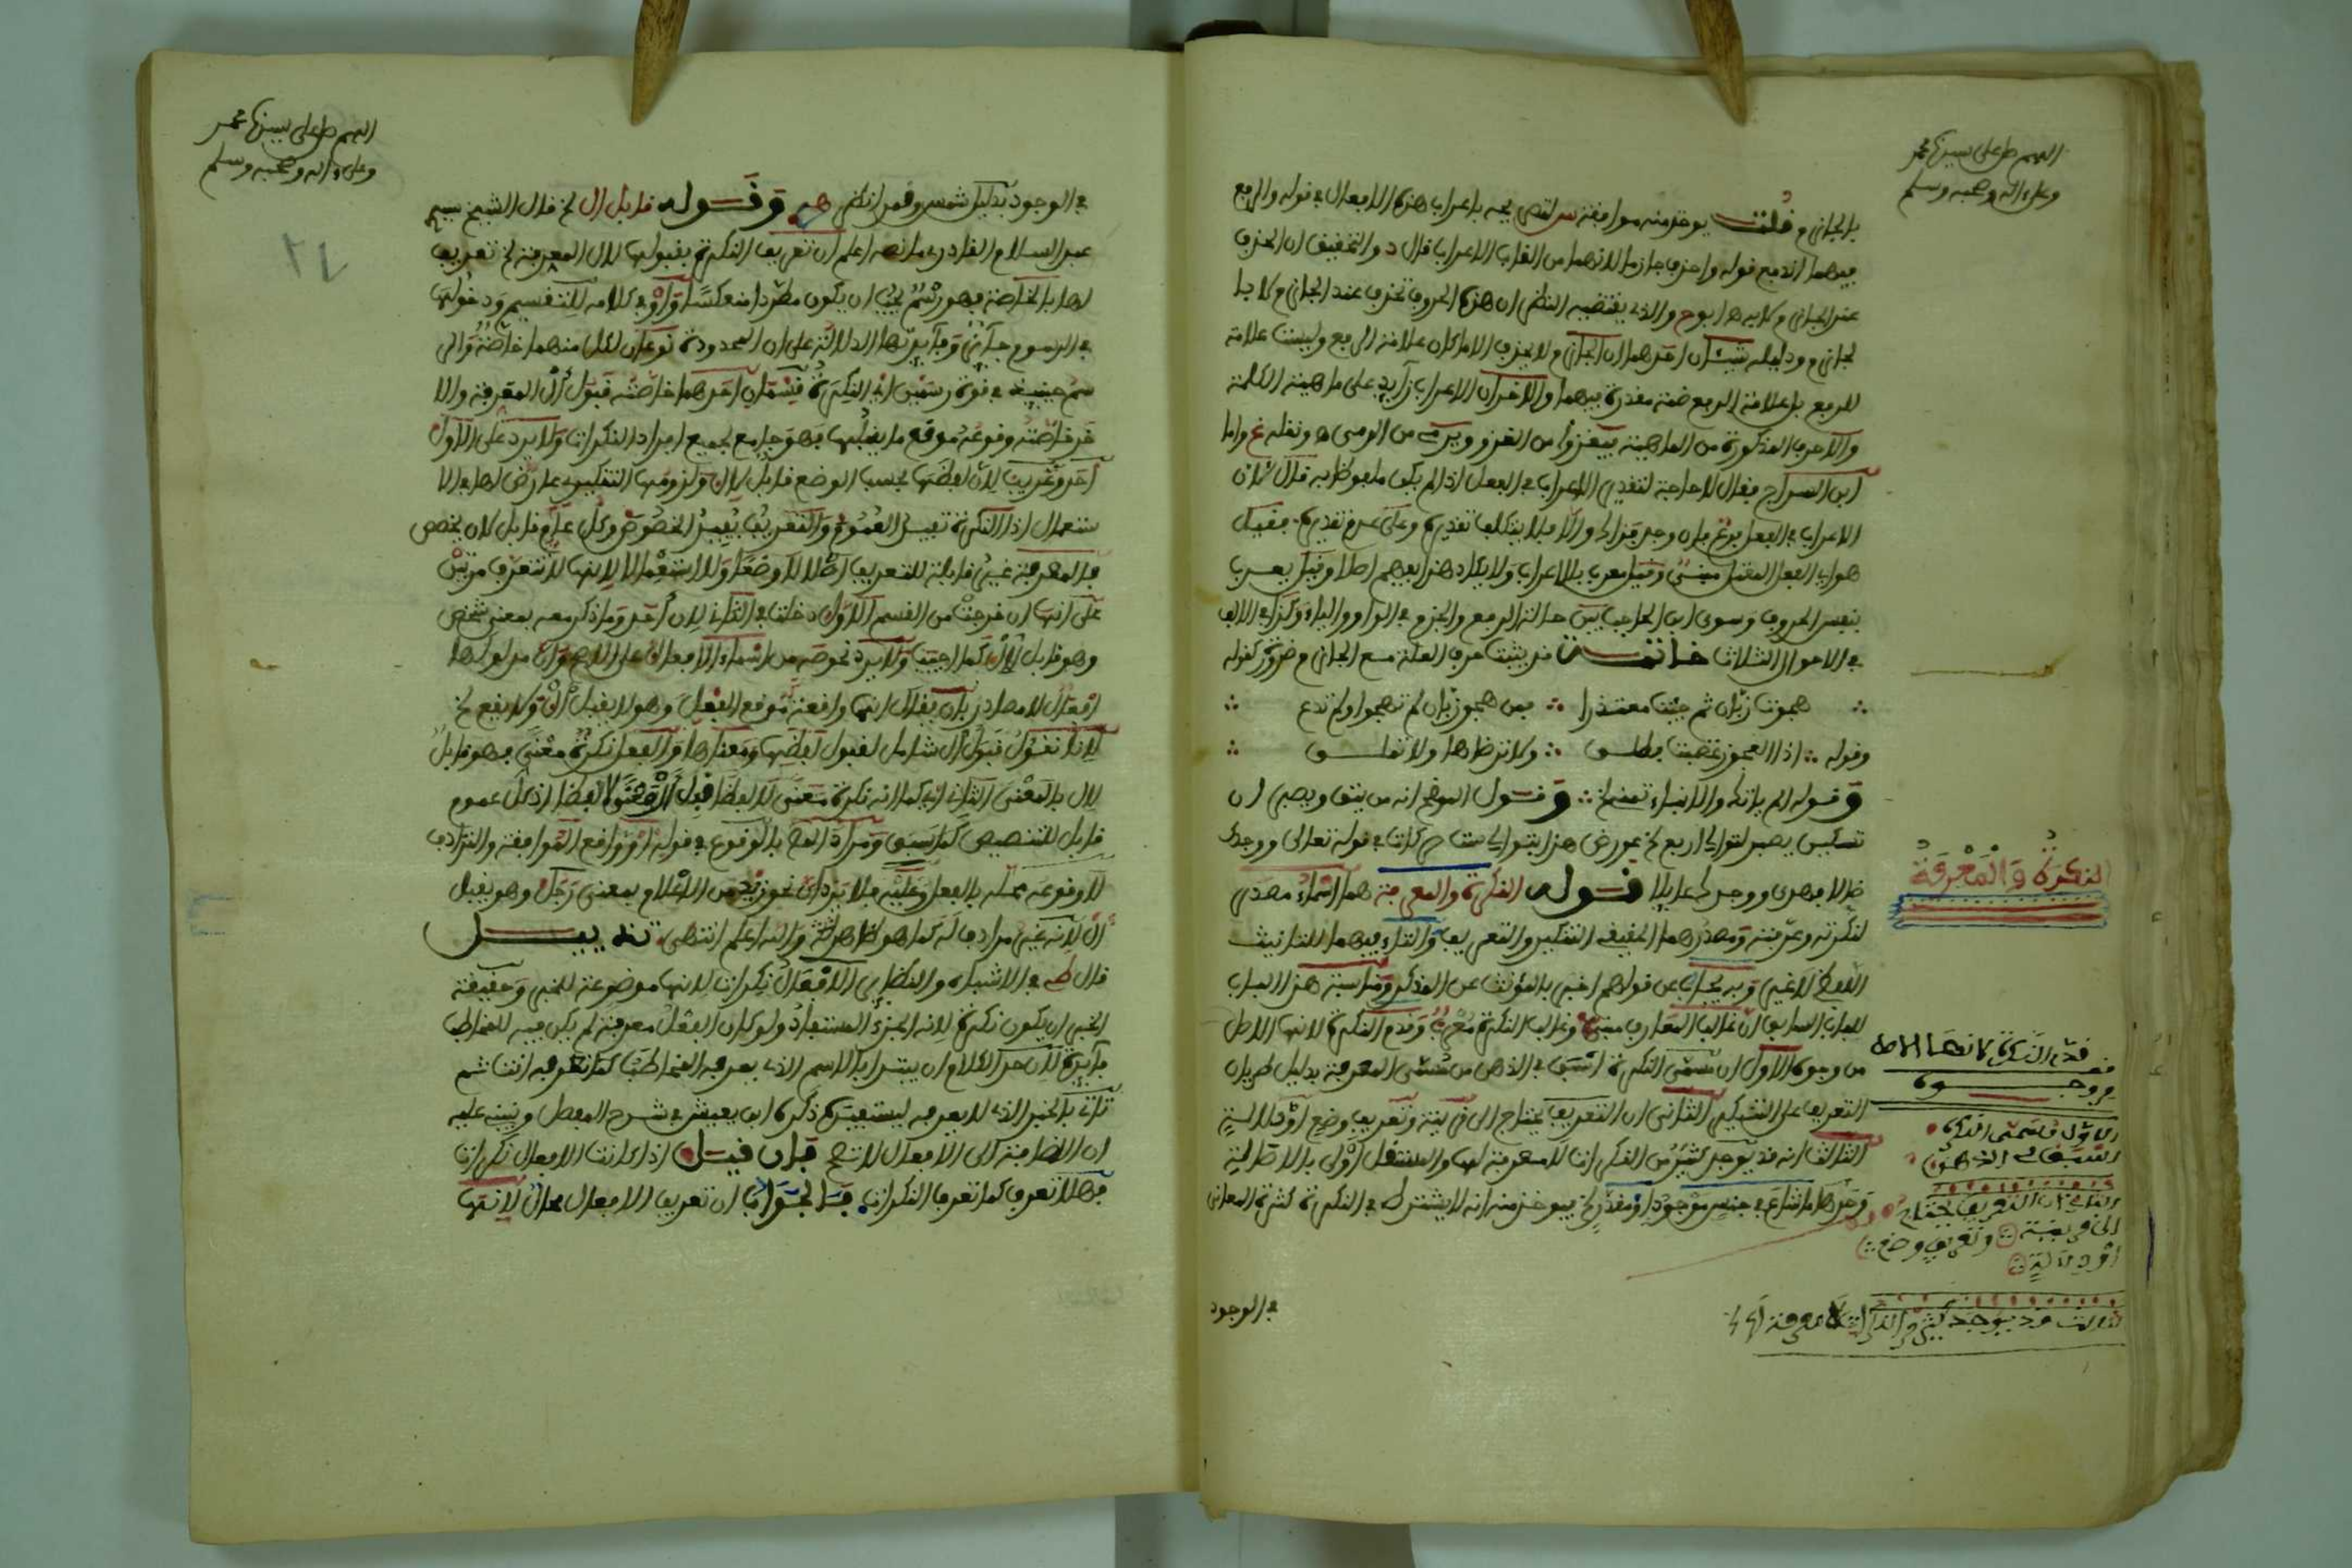 اللهم صل على سيدنا محمد
وعلى ءاله وصحبه وسلم
بالجازم قلت يوخذ منه موافقة س لتصريحه باعراب هذه الافعال في قوله والرفع
فيهما انو مع قوله واحذف جازما لانهما من القاب الاعراب قال د والتحقيق ان الحذف
عند الجازم كلا به ه ابو ح والذي يقتضيه النظر ان هذه الحروف تحذف عند الجازم لا با
لجازم ودليله شيئان احدهما ان الجازم لا يحذف الا ما كان علامة الرفع وليست علامة
للرفع بل علامة الرفع ضمة مقدرة فيهما والاخر ان الاعراب زآيد على ماهية الكلمة
والاحرف المذكورة من الماهية فيغزوا من الغزو ويرمي من الرمي ه ونقله غ واما
ابن السراج فقال لا حاجة لتقدير الاعراب في الفعل اذا لم يكن ملفوظا به قال لان
الاعراب في الفعل فرع فان وجد فذاك والا فلا يتكلف تقديره وعلى عدم تقديره فقيل
هو اي الفعل المعتل مبني وقيل معرب بلا اعراب ولا يكاد هذا يفهم اصلا وقيل يعرب
بنفس الحروف وسوى ابن الحاجب بين حالة الرفع والجزم في الواو والياء وكذا في الالف
في الاحوال الثلاث خاتمة قد يثبت حرف العلة مع الجازم ضرورة كقوله
هجوت زبان ثم جئت معتذرا ∴ من هجو زبان لم تهجوا ولم تدع
وقوله ∴ اذا العجوز غضبت فطلق ∴ ولا ترضاها ولا تملق
وقوله الم ياتيك والانباء تنمي ∴ وقول الموضح انه من يتق ويصبر ان
تسكين يصبر لتوالي اربع الخ عورض هذا بتوالي ست حركات في قوله تعالى ووجدك
ضالا فهدى ووجدك عايلا قوله النكرة والمعرفة هما اسماء مصدري
لنكرته وعرفته ومصدرهما الحقيقي التنكير والتعريف والتاء فيهما للتانيث
اللفظي لا غير وبه يجاب عن قولهم اخبر بالمؤنث عن المذكر ومناسبة هذا الباب
للباب السابق ان غالب المعارف مبني وغالب النكرة معرب وقدم النكرة لانها الاصل
من وجوه الاول ان مسمى النكرة اسبق في الذهن من مسمى المعرفة بدليل طريان
التعريف على التنكير الثاني ان التعريف يحتاج الى قرينة وتعريف وضع او دلالة
الثالث انه قد يوجد كثير من النكرات لا معرفة لها والمستقل اولى بالاصالة
وحدها ما شاع في جنس موجود او مقدر الخ فيوخذ منه انه لا يشترط في النكرة كثرة المعاني
في الوجود
النكرة والمعرفة
قف قدم النكرة لانها الاصل
من وجوه
الاول مسمى النكرة
اسبق في الذهن
الثاني ان التعريف يحتاج
الى قرينة وتعريف وضع
او دلالة
الثالث قد يوجد كثير من النكرات لا معرفة لها
اللهم صل على سيدنا محمد
وعلى ءاله وصحبه وسلم
في الوجود بدليل شمس وقمر انظر وقوله قابل ال الخ قال الشيخ سيدي
عبد السلام القادري ما نصه اعلم ان تعريف النكرة بقبولها لال المعرفة الخ تعريف
لها بالخاصة فهو رسم يجب ان يكون مطردا منعكسا واو في كلامه للتقسيم ودخولها
في الرسوم جآئز وفآيدتها الدلالة على ان المحدودة نوعان لكل منهما خاصة والر
سم حينيذ في قوة رسمين اي النكرة قسمان احدهما خاصته قبول ال المعرفة والا
خر خاصته وقوعه موقع ما يقبلها فهو جامع لجميع افراد النكرات ولا يرد على الاول
احد وعريب لان لفظها بحسب الوضع قابل لال ولزومها التنكير عارض لها في الا
ستعمال اذ النكرة تفيد العموم والتعريف يفيد الخصوص وكل عام قابل لان يخص
فالمعرفة غير قابلة للتعريف اصلا لا وضعا ولا استعمالا لانها لا تتعرف مرتين
على انها ان خرجت من القسم الاول دخلت في الثاني لان احد وما ذكر معه بمعنى شخص
وهو قابل لال كما اجيب ولا يرد نحو صه من اسماء الافعال على الاصح وان مدلولها
افعال لا مصادر بان يقال انها واقعة موقع الفعل وهو لا يقبل ال ولا يقع الخ
لانا نقول قبول ال شامل لقبول لفظها ومعناها والفعل نكرة معنى فهو قابل
لال بالمعنى الثاني اي كما انه نكرة معنى لا لفظا قبل ال معنى لا لفظا اذ كل عموم
قابل للتخصيص كما سبق ومراد الناظم بالوقوع في قوله او واقع الموافقة والترادف
لا وقوعه محله بالفعل وعليه فلا يرد ان نحو زيد من الاعلام بمعنى رجل وهو يقبل
ال لانه غير مرادف له كما هو ظاهر والله اعلم انتهى تذييل
قال في الاشباه والنظاير الافعال نكرات لانها موضوعة للخبر وحقيقة
الخبر ان يكون نكرة لانه الجزء المستفاد ولو كان الفعل معرفة لم يكن فيه للمخاطب
فآيدة لان حد الكلام ان يبتدا بالاسم الذي يعرفه المخاطب كما تعرفه انت ثم
تاتي بالخبر الذي لا يعرفه ليستفيده ذكره ابن يعيش في شرح المفصل ونبنه عليه
ان الاضافة الى الافعال لا تصح فان قيل اذا كانت الافعال نكرات
فهلا تعرف كما تعرف النكرات فالجواب ان تعريف الافعال محال لانها